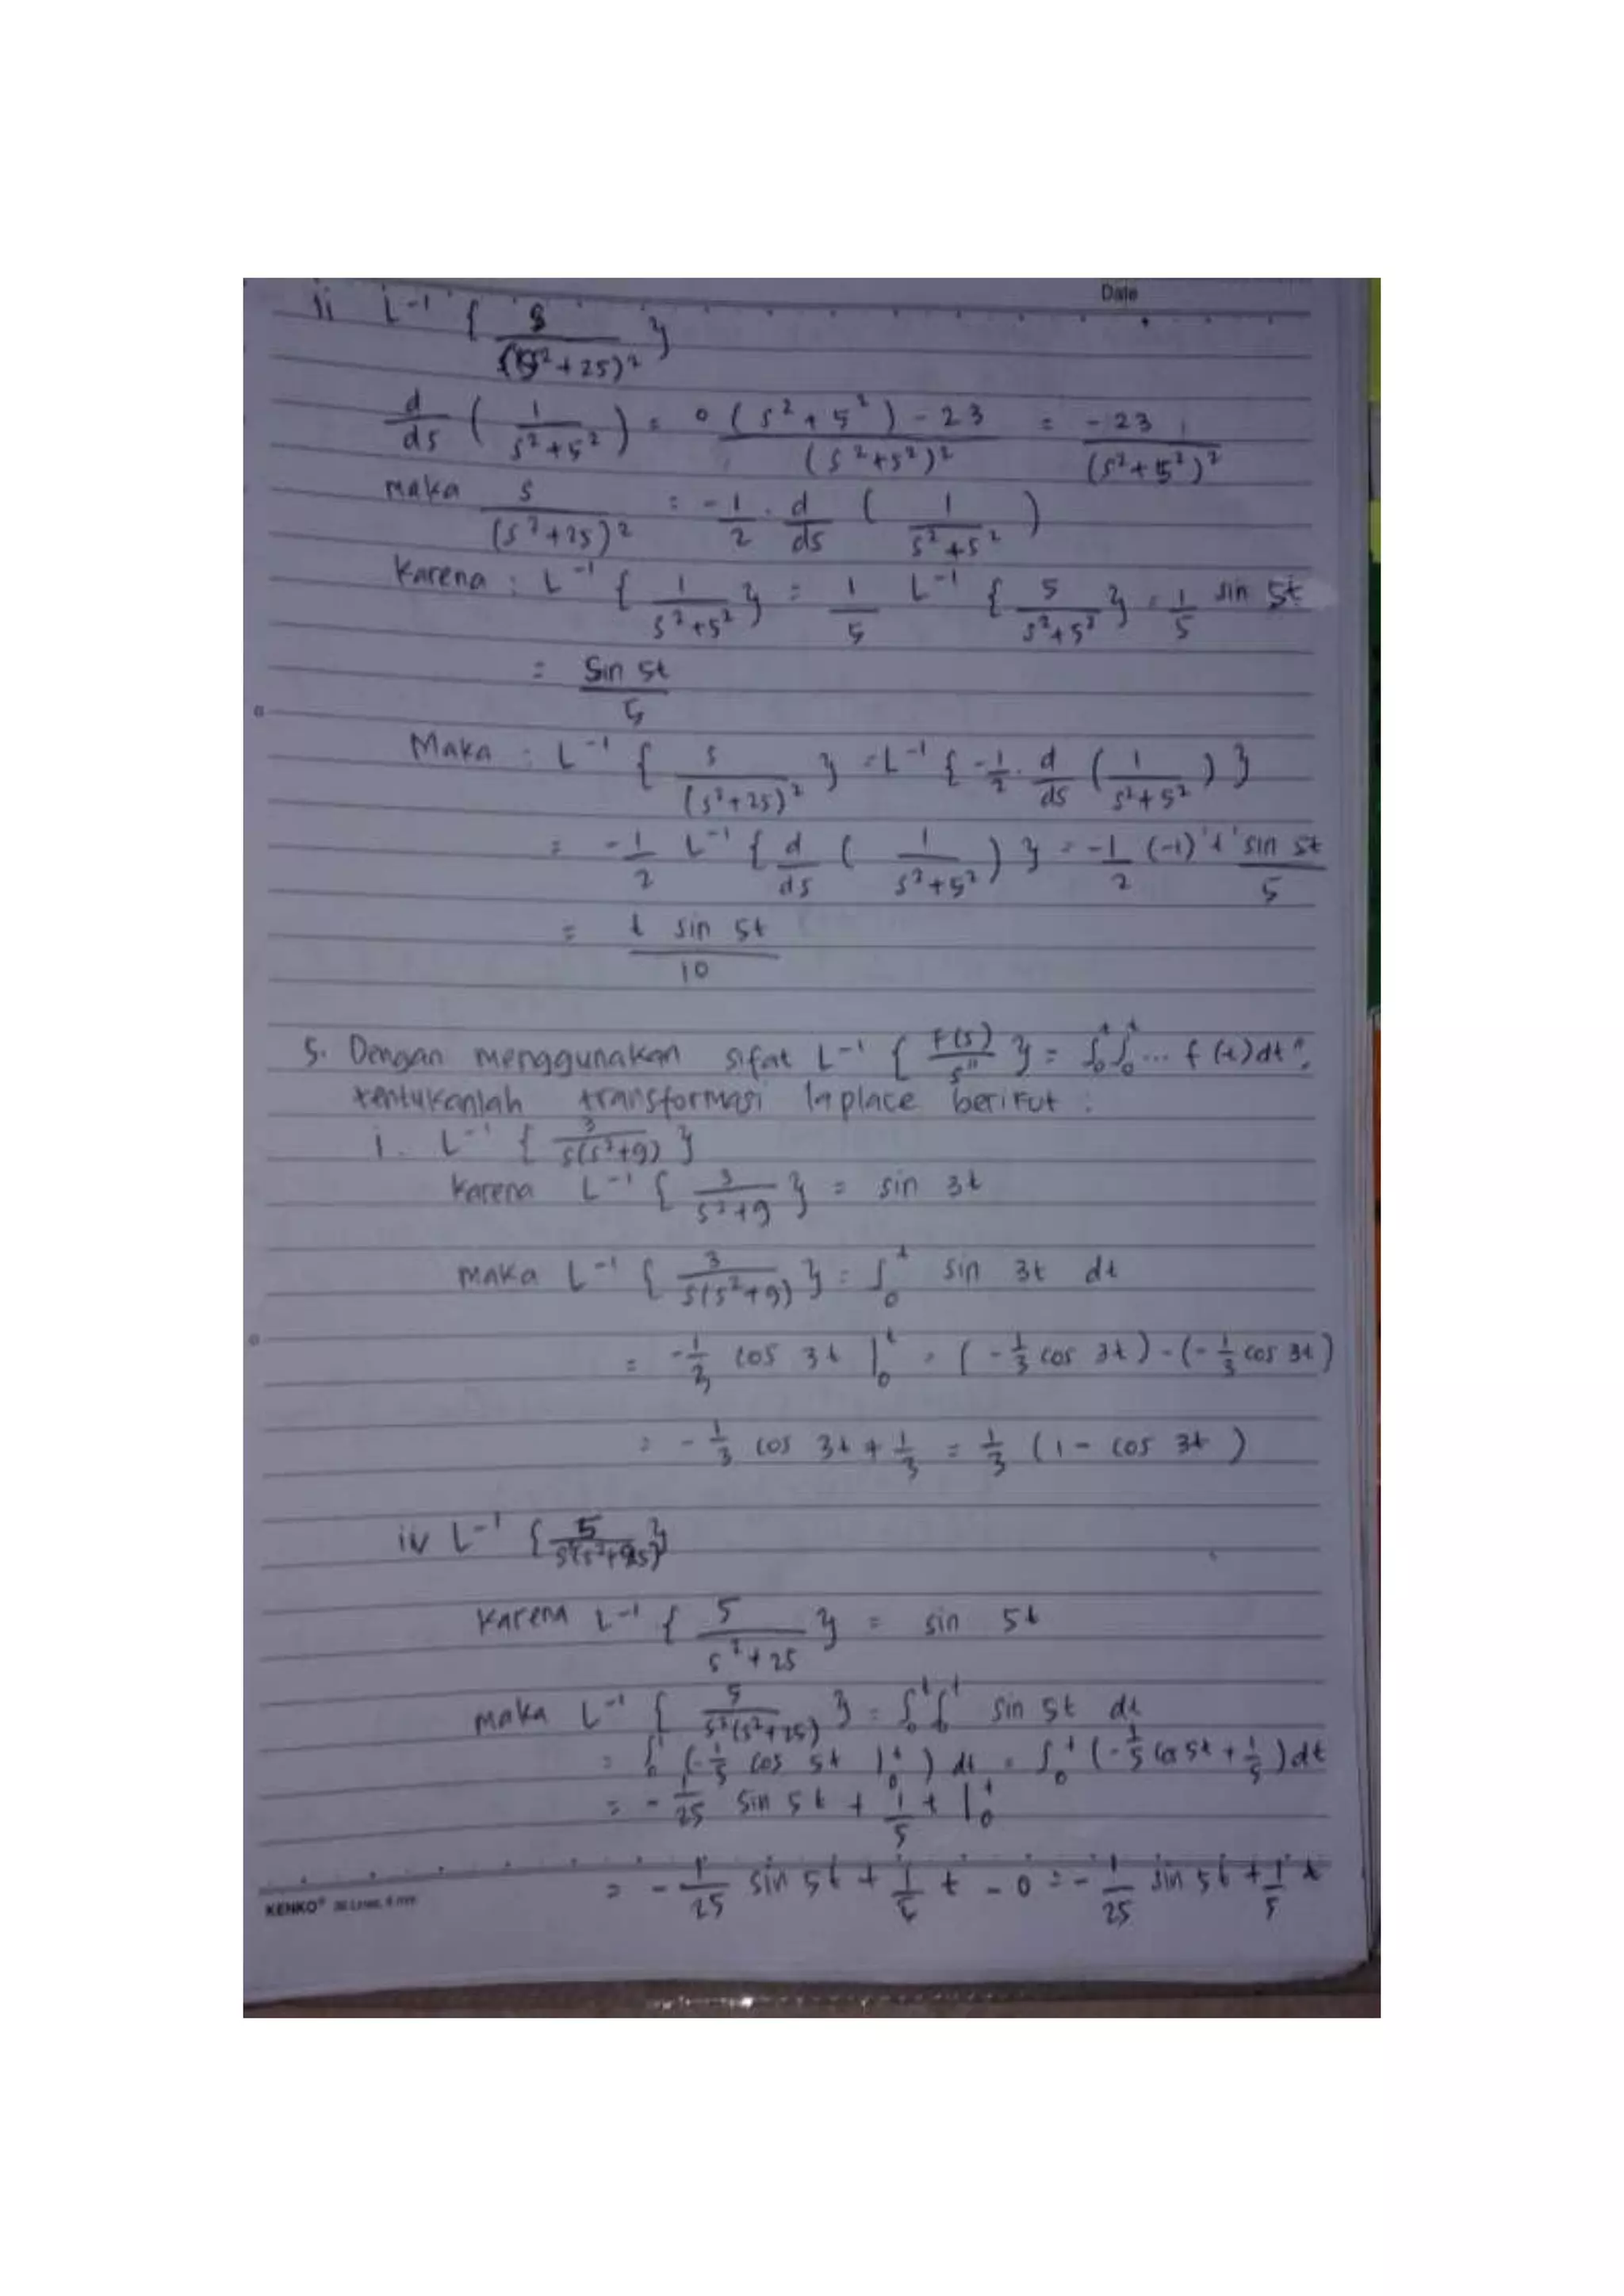 Date
ii L⁻¹ { s / (s²+25)² }
d/ds ( 1 / s²+5² ) = 0 ( s² + 5² ) - 23 / (s²+5²)² = -23 / (s²+5²)²
maka s / (s²+25)² = -1/2 . d/ds ( 1 / s²+5² )
Karena : L⁻¹ { 1 / s²+5² } = 1/5 L⁻¹ { 5 / s²+5² } = 1/5 sin 5t
= Sin 5t / 5
Maka : L⁻¹ { s / (s²+25)² } = L⁻¹ { -1/2 . d/ds ( 1 / s²+5² ) }
= -1/2 L⁻¹ { d/ds ( 1 / s²+5² ) } = -1/2 (-1)¹ t¹ sin 5t / 5
= t sin 5t / 10
5. Dengan menggunakan sifat L⁻¹ { F(s) / sⁿ } = ∫₀ᵗ ∫₀ᵗ ... f (t) dtⁿ,
tentukanlah transformasi laplace berikut :
i. L⁻¹ { 3 / s(s²+9) }
Karena L⁻¹ { 3 / s²+9 } = sin 3t
maka L⁻¹ { 3 / s(s²+9) } = ∫₀ᵗ sin 3t dt
= -1/3 cos 3t |₀ᵗ = ( -1/3 cos 3t ) - ( -1/3 cos 3t )
= -1/3 cos 3t + 1/3 = 1/3 ( 1 - cos 3t )
iv L⁻¹ { 5 / s²(s²+25) }
Karena L⁻¹ { 5 / s²+25 } = sin 5t
maka L⁻¹ { 5 / s²(s²+25) } = ∫₀ᵗ ∫₀ᵗ sin 5t dt
= ∫₀ᵗ ( -1/5 cos 5t |₀ᵗ ) dt = ∫₀ᵗ ( -1/5 cos 5t + 1/5 ) dt
= -1/25 sin 5t + 1/5 t |₀ᵗ
= -1/25 sin 5t + 1/5 t - 0 = -1/25 sin 5t + 1/5 t
KENKO®